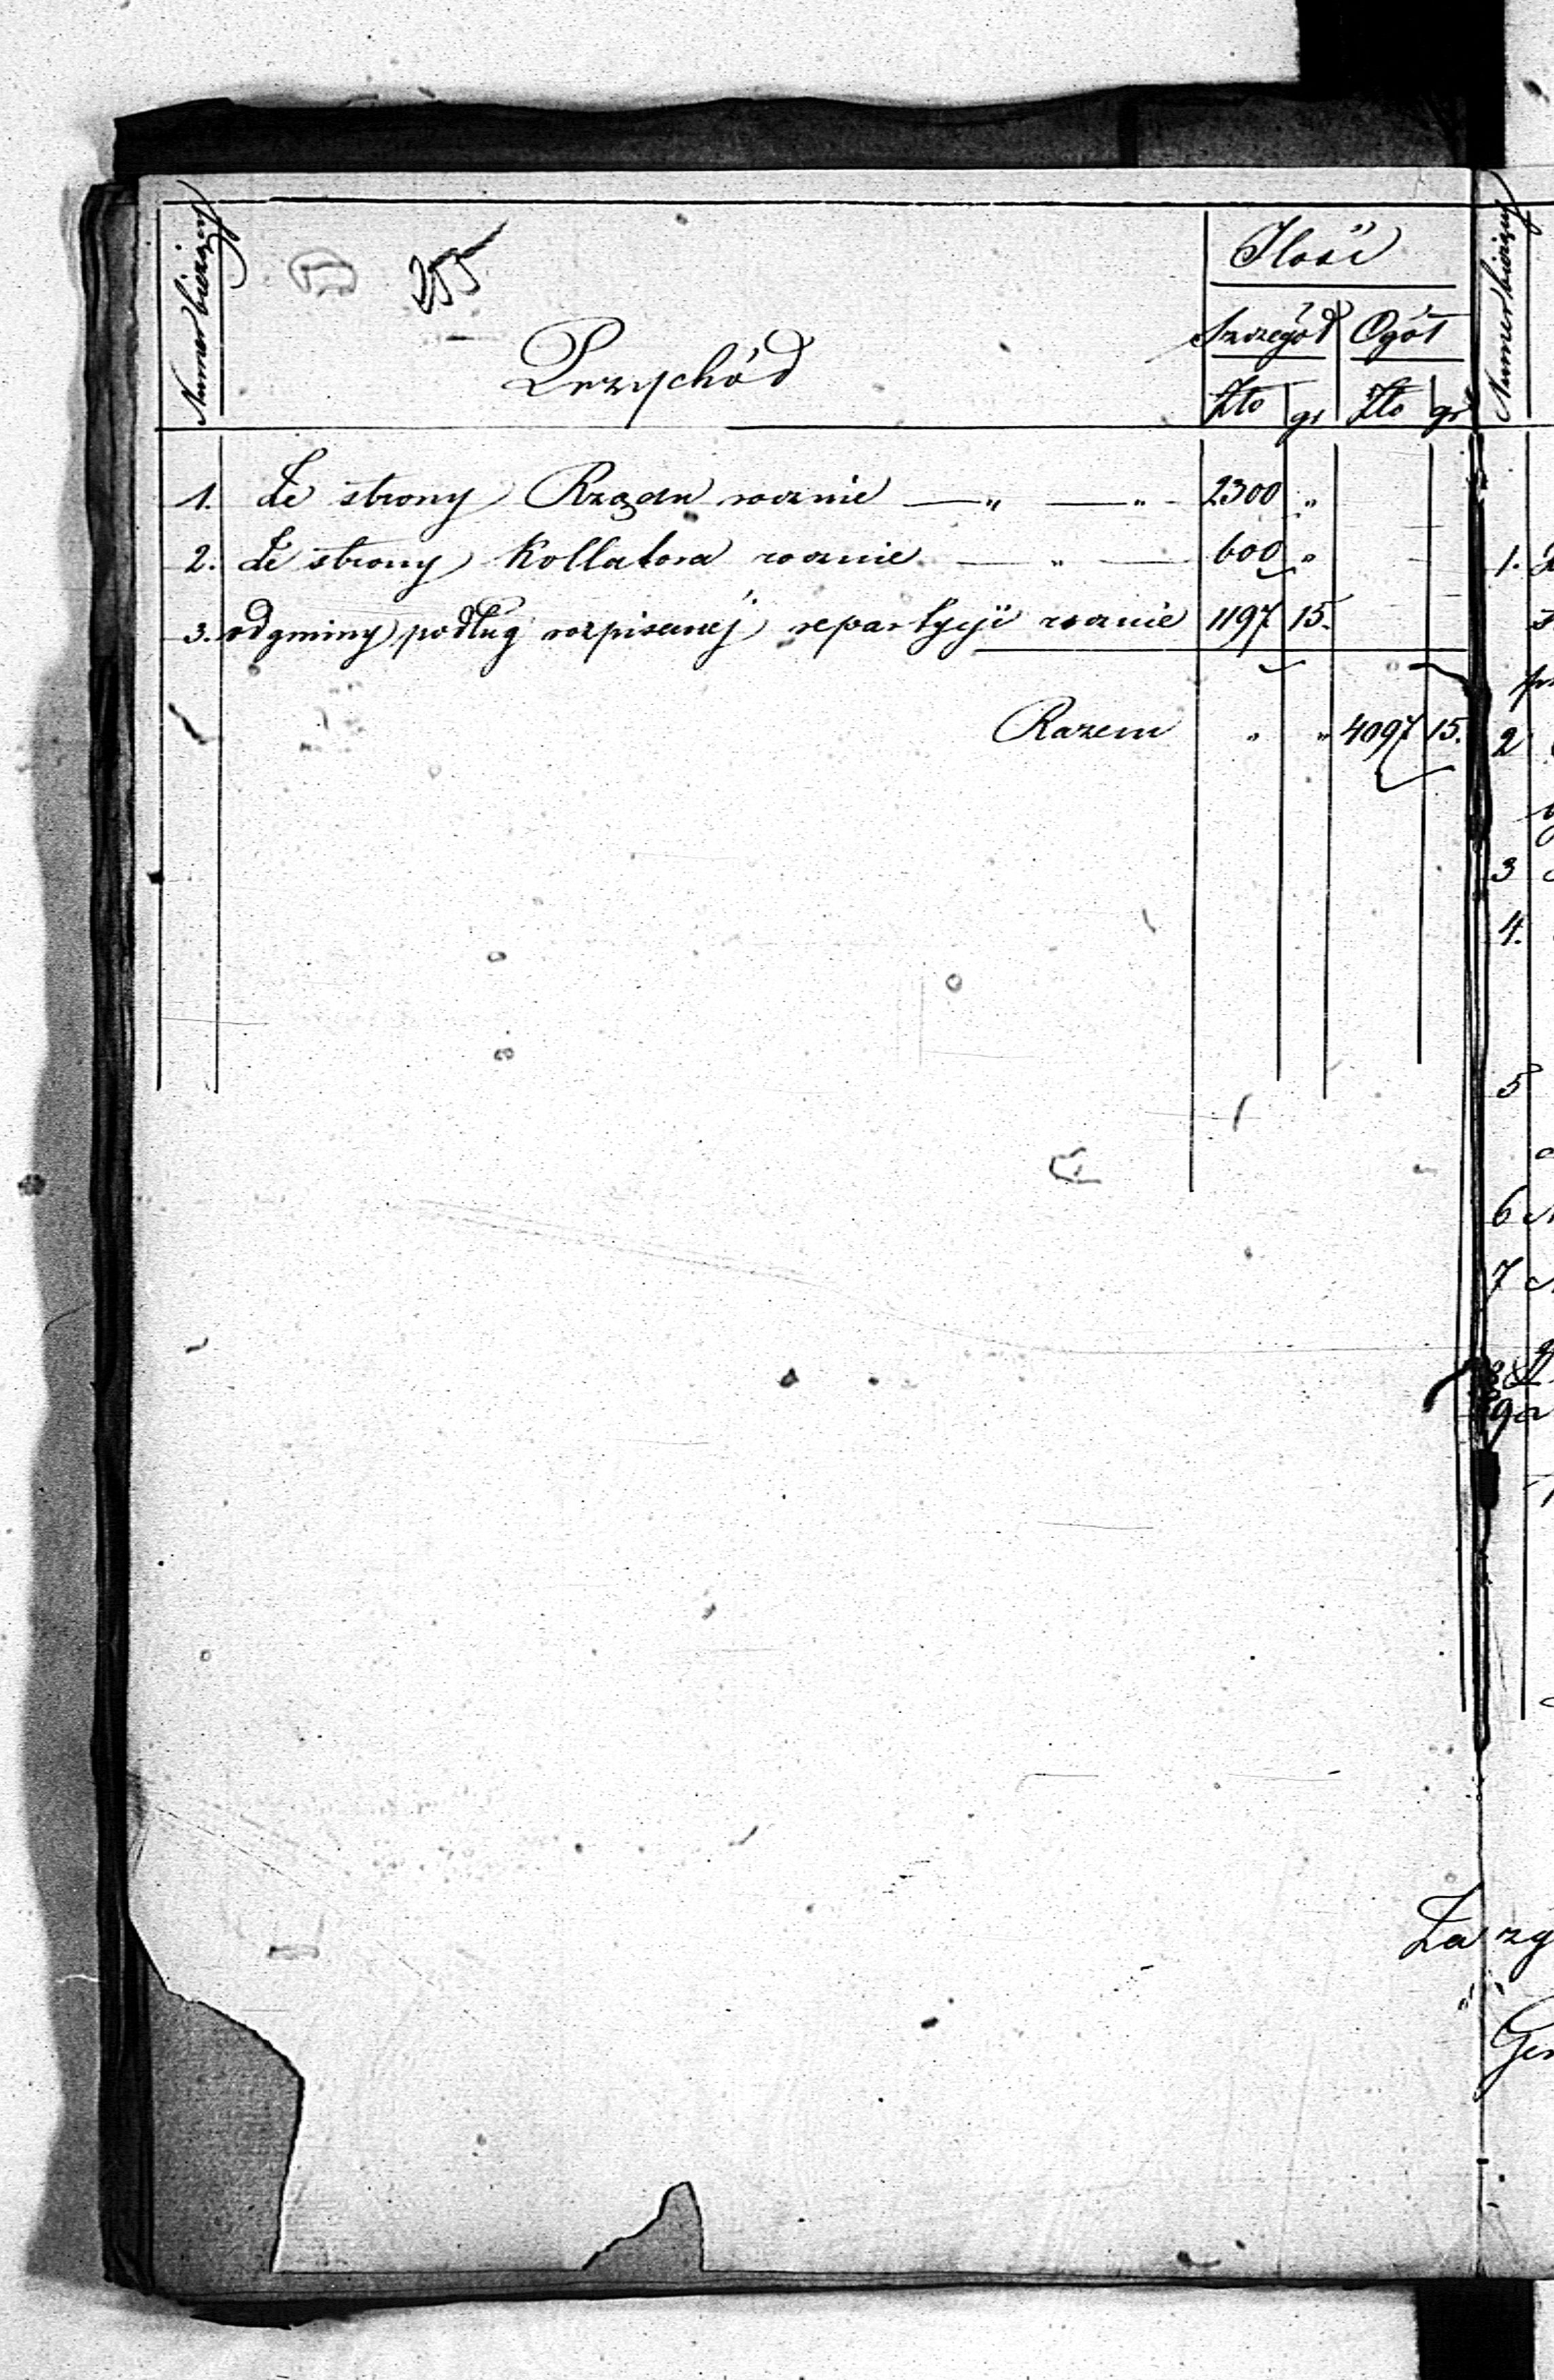 Numer bieżący
255
Przychód
Ilość
Szczegół Ogół
Złto gr Złto gr
1. Ze strony Rządu rocznie — „ — „ — 2300 „
2. Ze strony Kollatora rocznie — „ — 600 „
3. od gminy podług rozpisanej repartycji rocznie 1197 15.
Razem „ „ 4097 15.
Numer bieżący
1.
2
3
4.
5
6
7
8
9
Za